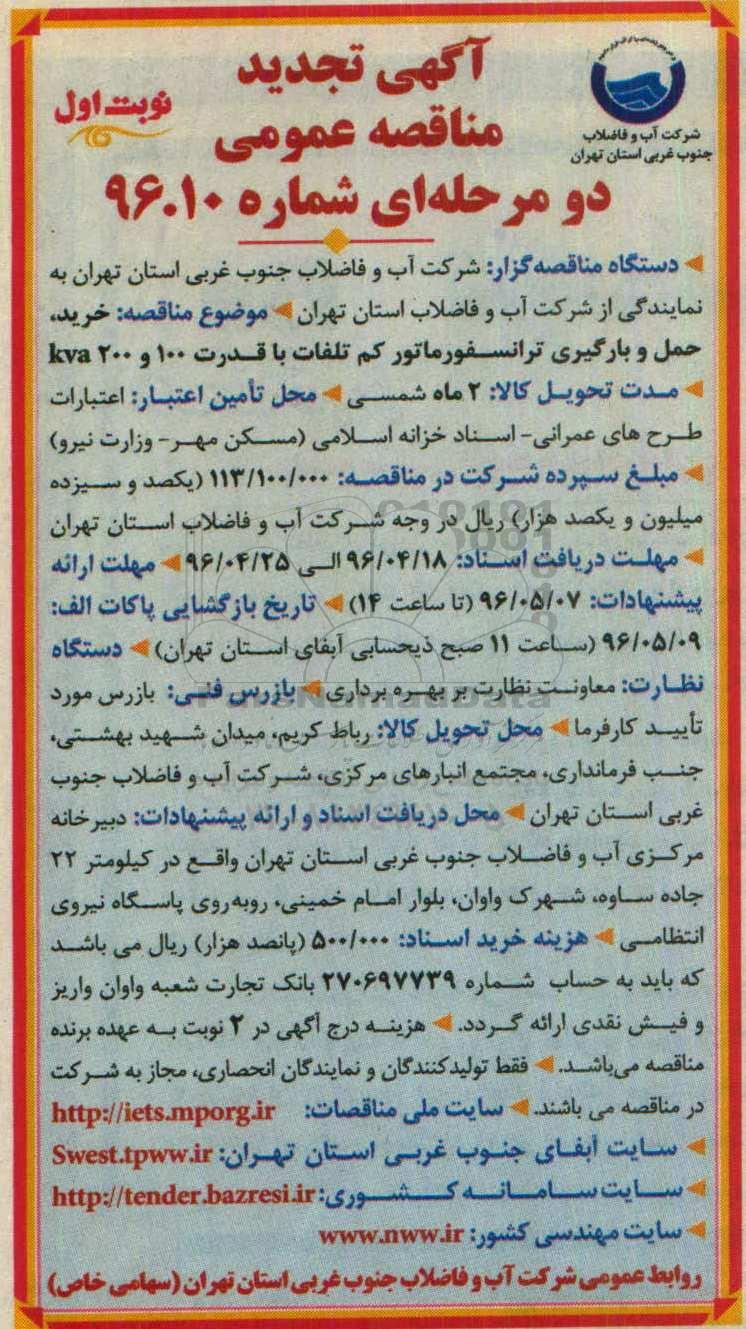 آگهی تجدید
مناقصه عمومی
دو مرحله‌ای شماره ۹۶.۱۰
نوبت اول
شرکت آب و فاضلاب
جنوب غربی استان تهران
دستگاه مناقصه‌گزار: شرکت آب و فاضلاب جنوب غربی استان تهران به
نمایندگی از شرکت آب و فاضلاب استان تهران موضوع مناقصه: خرید،
حمل و بارگیری ترانسفورماتور کم تلفات با قدرت ۱۰۰ و ۲۰۰ kva
مدت تحویل کالا: ۲ ماه شمسی محل تأمین اعتبار: اعتبارات
طرح های عمرانی- اسناد خزانه اسلامی (مسکن مهر- وزارت نیرو)
مبلغ سپرده شرکت در مناقصه: ۱۱۳/۱۰۰/۰۰۰ (یکصد و سیزده
میلیون و یکصد هزار) ریال در وجه شرکت آب و فاضلاب استان تهران
مهلت دریافت اسناد: ۹۶/۰۴/۱۸ الی ۹۶/۰۴/۲۵ مهلت ارائه
پیشنهادات: ۹۶/۰۵/۰۷ (تا ساعت ۱۴) تاریخ بازگشایی پاکات الف:
۹۶/۰۵/۰۹ (ساعت ۱۱ صبح ذیحسابی آبفای استان تهران) دستگاه
نظارت: معاونت نظارت بر بهره برداری بازرس فنی: بازرس مورد
تأیید کارفرما محل تحویل کالا: رباط کریم، میدان شهید بهشتی،
جنب فرمانداری، مجتمع انبارهای مرکزی، شرکت آب و فاضلاب جنوب
غربی استان تهران محل دریافت اسناد و ارائه پیشنهادات: دبیرخانه
مرکزی آب و فاضلاب جنوب غربی استان تهران واقع در کیلومتر ۲۲
جاده ساوه، شهرک واوان، بلوار امام خمینی، روبه‌روی پاسگاه نیروی
انتظامی هزینه خرید اسناد: ۵۰۰/۰۰۰ (پانصد هزار) ریال می باشد
که باید به حساب شماره ۲۷۰۶۹۷۷۳۹ بانک تجارت شعبه واوان واریز
و فیش نقدی ارائه گردد. هزینه درج آگهی در ۲ نوبت به عهده برنده
مناقصه می‌باشد. فقط تولیدکنندگان و نمایندگان انحصاری، مجاز به شرکت
در مناقصه می باشند. سایت ملی مناقصات: http://iets.mporg.ir
سایت آبفای جنوب غربی استان تهران: Swest.tpww.ir
سایت سامانه کشوری: http://tender.bazresi.ir
سایت مهندسی کشور: www.nww.ir
روابط عمومی شرکت آب و فاضلاب جنوب غربی استان تهران (سهامی خاص)